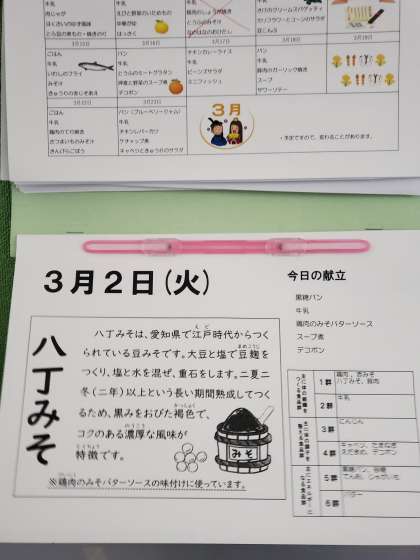 牛乳
肉じゃが
はくさいのゆず風味
牛乳
エビと野菜のいためもの
中華がゆ
はっさく
牛乳
とうふのみそ汁
牛乳
カリフラワーとコーンのサラダ
3月15日
3月16日
3月17日
3月18日
ごはん
牛乳
いわしのフライ
みそ汁
パン
牛乳
とうふのミートグラタン
押麦と野菜のスープ煮
デコポン
チキンカレーライス
牛乳
ビーンズサラダ
ミニフィッシュ
パン
牛乳
豚肉のガーリック焼き
スープ
サワーソテー
3月22日
3月23日
ごはん
牛乳
鶏肉のてり焼き
さつまいものみそ汁
きんぴらごぼう
パン(ブルーベリージャム)
牛乳
チキンレバーカツ
ケチャップ煮
キャベツときゅうりのサラダ
3月
・予定ですので、変わることがあります。
3月2日(火)
今日の献立
黒糖パン
牛乳
鶏肉のみそバターソース
スープ煮
デコポン
八丁みそ
八丁みそは、愛知県で江戸時代からつく
られている豆みそです。大豆と塩で豆麹を
つくり、塩と水を混ぜ、重石をします。二夏二
冬(二年)以上という長い期間熟成してつく
るため、黒みをおびた褐色で、
コクのある濃厚な風味が
特徴です。
みそ
※鶏肉のみそバターソースの味付けに使っています。
1群
鶏肉、赤みそ
八丁みそ、豚肉
2群
牛乳
3群
にんじん
4群
キャベツ、たまねぎ
えだまめ、デコポン
5群
黒糖パン、砂糖
でん粉、じゃがいも
6群
バター